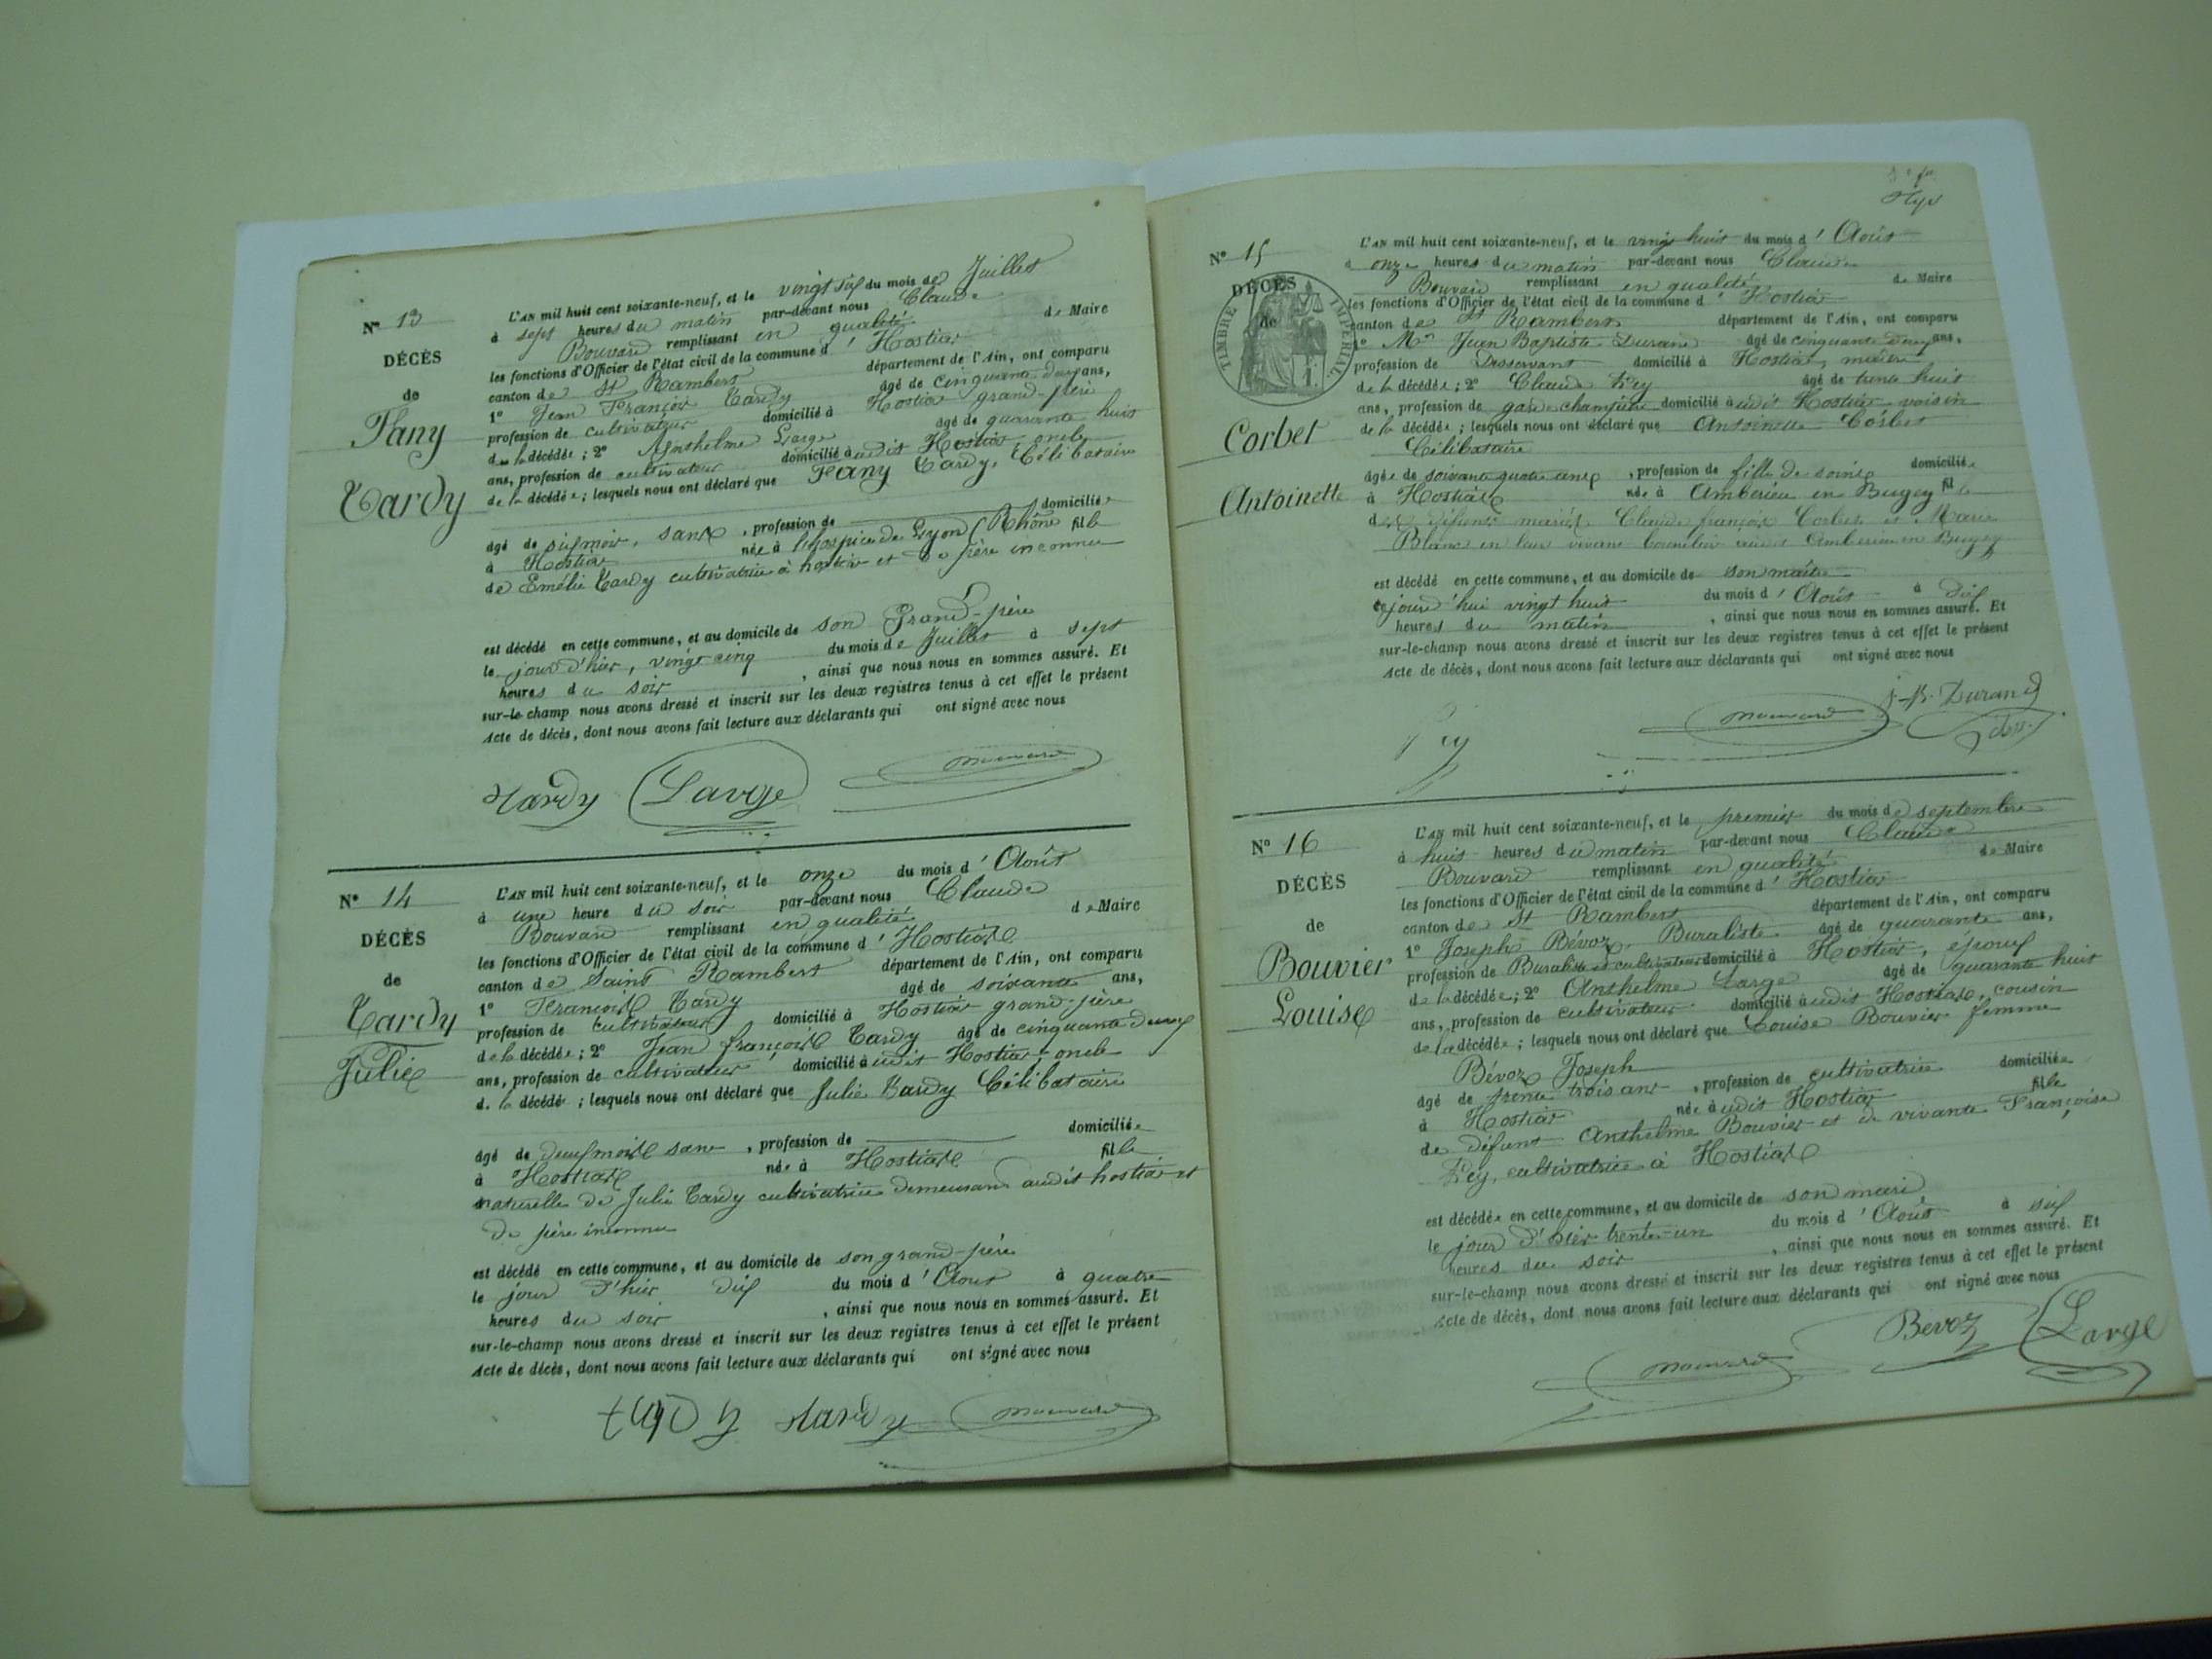 N° 13
DÉCÈS
de
Fany
Tardy
L'AN mil huit cent soixante-neuf, et le vingt six du mois de Juillet
à sept heures du matin par-devant nous Claude
Bouvard remplissant en qualité de Maire
les fonctions d'Officier de l'état civil de la commune d' Hostias
canton de St Rambert département de l'Ain, ont comparu
1° Jean François Tardy âgé de cinquante deux ans,
profession de cultivateur domicilié à Hostias grand-père
de la décédée ; 2° Anthelme Large âgé de quarante huit
ans, profession de cultivateur domicilié audit Hostias oncle
de la décédée ; lesquels nous ont déclaré que Fany Tardy, Célibataire
âgé de six mois, sans , profession de domiciliée
à Hostias née à l'hospice de Lyon (Rhône fille
de Emélie Tardy cultivatrice à hostias et de père inconnu
est décédé en cette commune, et au domicile de son Grand-père
le jour d'hier, vingt cinq du mois de Juillet à sept
heures du soir , ainsi que nous nous en sommes assuré. Et
sur-le-champ nous avons dressé et inscrit sur les deux registres tenus à cet effet le présent
Acte de décès, dont nous avons fait lecture aux déclarants qui ont signé avec nous
tardy Large Bouvard
N° 14
DÉCÈS
de
Tardy
Julie
L'AN mil huit cent soixante-neuf, et le onze du mois d' Août
à une heure du soir par-devant nous Claude
Bouvard remplissant en qualité de Maire
les fonctions d'Officier de l'état civil de la commune d' Hostias
canton de Saint Rambert département de l'Ain, ont comparu
1° François Tardy âgé de soixante ans,
profession de cultivateur domicilié à Hostias grand-père
de la décédée ; 2° Jean françois Tardy âgé de cinquante deux
ans, profession de cultivateur domicilié à udit Hostias oncle
de la décédé ; lesquels nous ont déclaré que Julie Tardy Célibataire
âgé de deux mois sans , profession de domiciliée
à Hostias née à Hostias fille
naturelle de Julie Tardy cultivatrice demeurant audit hostias et
de père inconnu
est décédé en cette commune, et au domicile de son grand-père
le jour d'hier dix du mois d' Août à quatre
heures du soir , ainsi que nous nous en sommes assuré. Et
sur-le-champ nous avons dressé et inscrit sur les deux registres tenus à cet effet le présent
Acte de décès, dont nous avons fait lecture aux déclarants qui ont signé avec nous
tardy tardy Bouvard
N° 15
DÉCÈS
de
TIMBRE IMPÉRIAL
Corbet
Antoinette
L'AN mil huit cent soixante-neuf, et le vingt huit du mois d' Août
à onze heures du matin par-devant nous Claude
Bouvard remplissant en qualité de Maire
les fonctions d'Officier de l'état civil de la commune d' Hostias
canton de St Rambert département de l'Ain, ont comparu
1° Mr Jean Baptiste Durand âgé de cinquante deux ans,
profession de Desservant domicilié à Hostias, maître
de la décédée ; 2° Claude Rey âgé de trente huit
ans, profession de garde champêtre domicilié à udit Hostias voisin
de la décédée ; lesquels nous ont déclaré que Antoinette Corbet
Célibataire
âgée de soixante quatre ans , profession de fille de domiciliée
à Hostias née à Amberieu en Bugey fille
des défunts mariés Claude françois Corbet et Marie
Blanc en leur vivant Amberieu en Bugey
est décédé en cette commune, et au domicile de son maître
ce jourd'hui vingt huit du mois d' Août à dix
heures du matin , ainsi que nous nous en sommes assuré. Et
sur-le-champ nous avons dressé et inscrit sur les deux registres tenus à cet effet le présent
Acte de décès, dont nous avons fait lecture aux déclarants qui ont signé avec nous
Rey Bouvard J-B. Durand
N° 16
DÉCÈS
de
Bouvier
Louise
L'AN mil huit cent soixante-neuf, et le premier du mois de septembre
à huit heures du matin par-devant nous Claude
Bouvard remplissant en qualité de Maire
les fonctions d'Officier de l'état civil de la commune d' Hostias
canton de St Rambert département de l'Ain, ont comparu
1° Joseph Bévoz, Buraliste âgé de quarante ans,
profession de Buraliste et cultivateur domicilié à Hostias, époux
de la décédée ; 2° Anthelme Large âgé de quarante huit
ans, profession de cultivateur domicilié à udit Hostias, cousin
de la décédée ; lesquels nous ont déclaré que Louise Bouvier femme
Bévoz Joseph
âgé de trente trois ans , profession de cultivatrice domiciliée
à Hostias née à udit Hostias fille
de défunt Anthelme Bouvier et de vivante Françoise
Rey, cultivatrice à Hostias
est décédée en cette commune, et au domicile de son mari
le jour d'hier trente-un du mois d' Août à six
heures du soir , ainsi que nous nous en sommes assuré. Et
sur-le-champ nous avons dressé et inscrit sur les deux registres tenus à cet effet le présent
Acte de décès, dont nous avons fait lecture aux déclarants qui ont signé avec nous
Bouvard Bevoz Large